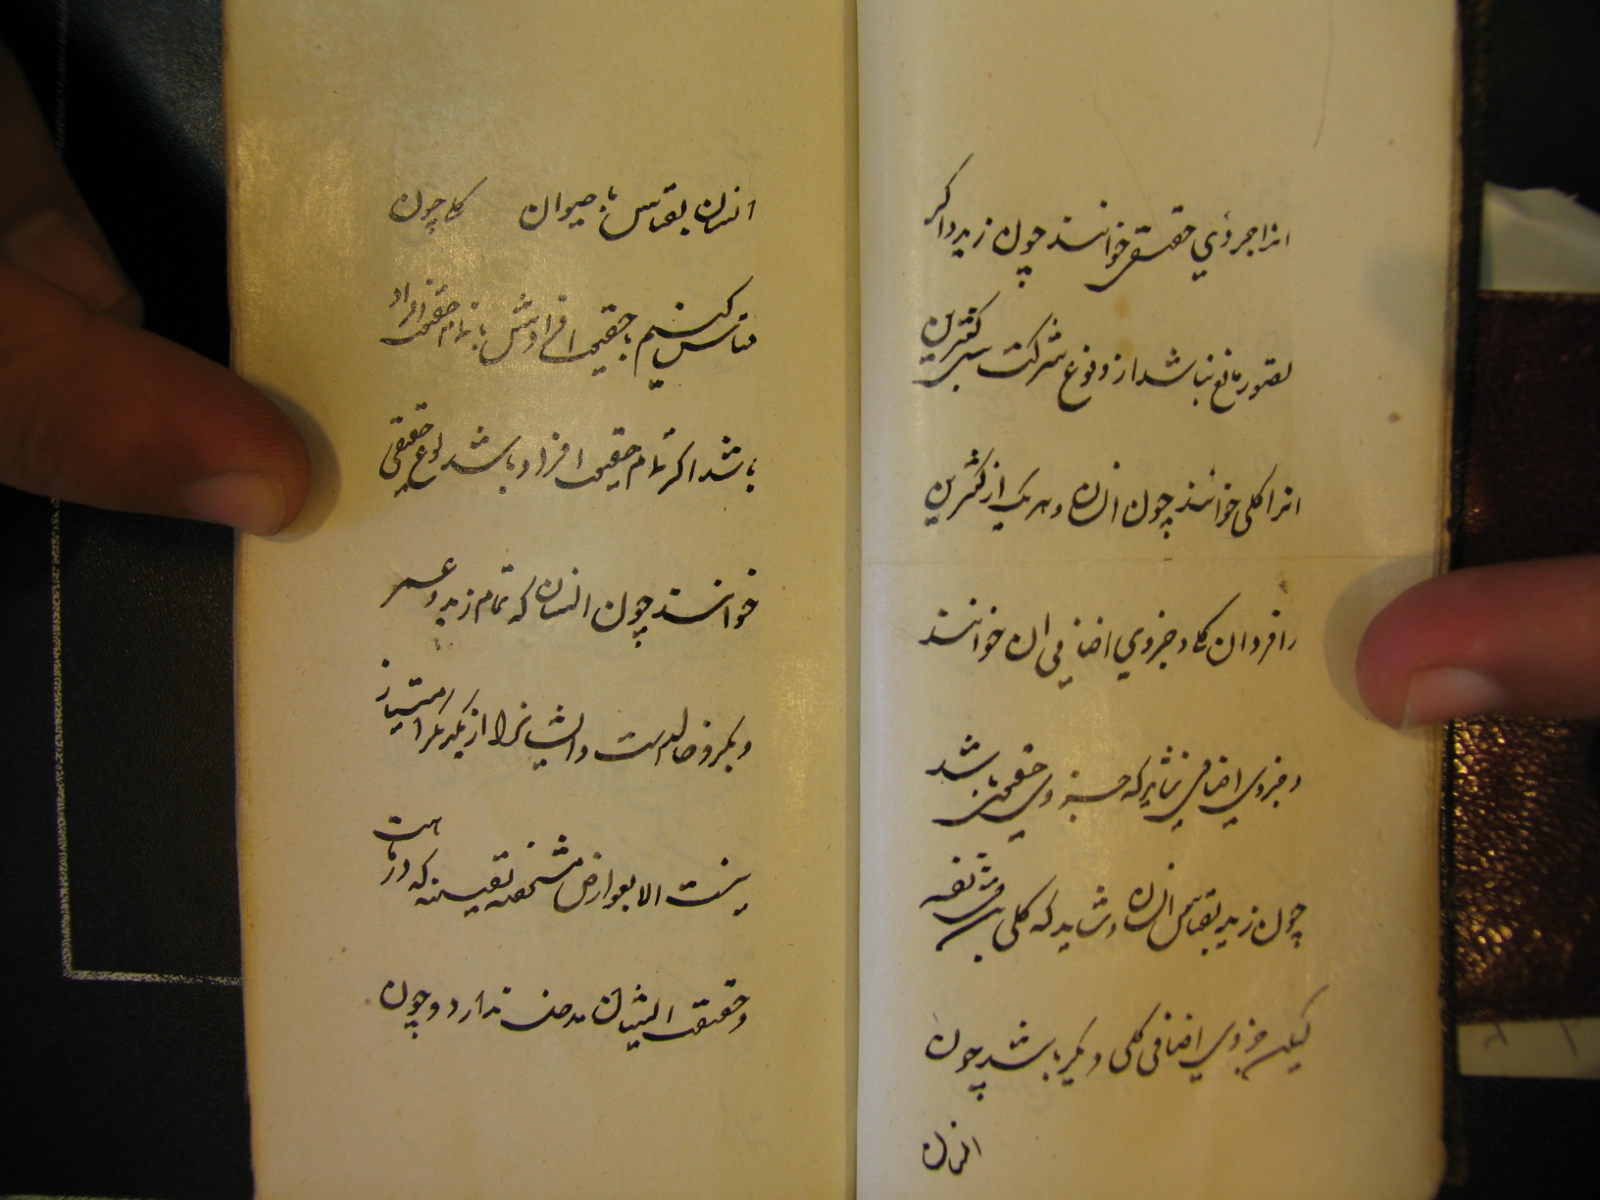 انرا جزوي حقیقی خوانند چون زید واکر
تصور مانع نباشد از وقوع شرکت کثیرین
انرا کلی خوانند چون انسان و هر یک از کثیرین
را فرد ان کلی و جزوي اضافی ان خوانند
و جزوي اضافی نشاید که جزوي حقیقی باشد
چون زید بقیاس انسان و شاید که کلی باشد فی نفسه
لیکن جزوي اضافی کلی دیگر باشد چون
انسان
انسان بقیاس با حیوان کلی چون
قیاس کنیم بحقیقت افرادش یا تمام حقیقت افراد
باشد اگر تمام حقیقت افراد باشد نوع حقیقی
خوانند چون انسان که تمام زید و عمر
و بکر و خالد است و ایشانرا از یکدیکر امتیاز
نیست الا بعوارض مشخصه معینه که در ماهیت
و حقیقت ایشان مدخل ندارد و چون